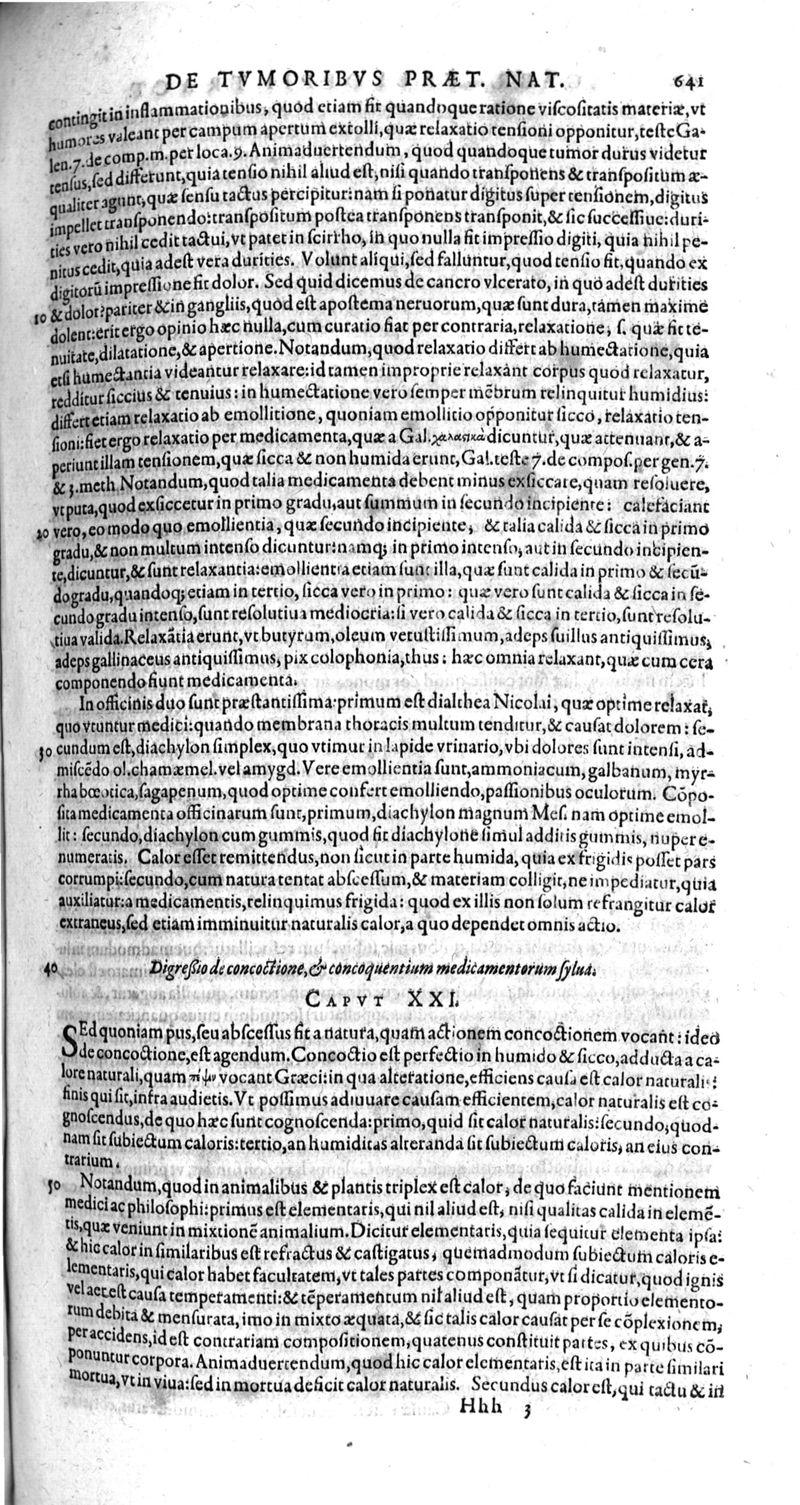 DE TVMORIBVS PRÆT. NAT. 641
contingit in inflammationibus, quod etiam fit quandoque ratione viſcoſitatis materiæ, vt
humores valeant per campum apertum extolli, quæ relaxatio tenſioni opponitur, teſte Ga-
len. 7. de comp. m. per loca. 9. Animaduertendum, quod quandoque tumor durus videtur
tenſus, ſed differunt, quia tenſio nihil aliud eſt, niſi quando tranſponens & tranſpoſitum æ-
qualiter agunt, quæ ſenſu tactus percipitur: nam ſi ponatur digitus ſuper tenſionem, digitus
impellet tranſponendo: tranſpoſitum poſtea tranſponens tranſponit, & ſic ſucceſſiue: duri-
ties vero nihil cedit tactui, vt patet in ſcirrho, in quo nulla fit impreſſio digiti, quia nihil pe-
nitus cedit, quia adeſt vera durities. Volunt aliqui, ſed falluntur, quod tenſio fit, quando ex
digitorū impreſſione fit dolor. Sed quid dicemus de cancro vlcerato, in quo adeſt durities
10 & dolor? pariter & in gangliis, quod eſt apoſtema neruorum, quæ ſunt dura, tamen maxime
dolent: erit ergo opinio hæc nulla, cum curatio fiat per contraria, relaxatione, ſ. quæ fit te-
nuitate, dilatatione, & apertione. Notandum, quod relaxatio differt ab humectatione, quia
etſi humectantia videantur relaxare: id tamen improprie relaxant corpus quod relaxatur,
redditur ſiccius & tenuius: in humectatione vero ſemper mēbrum relinquitur humidius:
differt etiam relaxatio ab emollitione, quoniam emollitio opponitur ſicco, relaxatio ten-
ſioni: fiet ergo relaxatio per medicamenta, quæ a Gal. χαλαστικὰ dicuntur, quæ attenuant, & a-
periunt illam tenſionem, quæ ſicca & non humida erunt, Gal. teſte 7. de compoſ. per gen. 7.
& 3. meth. Notandum, quod talia medicamenta debent minus exſiccare, quam reſoluere,
vt puta, quod exſiccetur in primo gradu, aut ſummum in ſecundo incipiente: calefaciant
20 vero, eo modo quo emollientia, quæ ſecundo incipiente, & talia calida & ſicca in primo
gradu, & non multum intenſo dicuntur: namq; in primo intenſo, aut in ſecundo incipien-
te, dicuntur, & ſunt relaxantia: emollientia etiam ſunt illa, quæ ſunt calida in primo & ſecū-
do gradu, quandoq; etiam in tertio, ſicca vero in primo: quæ vero ſunt calida & ſicca in ſe-
cundo gradu intenſo, ſunt reſolutiua mediocria: ſi vero calida & ſicca in tertio, ſunt reſolu-
tiua valida. Relaxātia erunt, vt butyrum, oleum vetuſtiſſimum, adeps ſuillus antiquiſſimus,
adeps gallinaceus antiquiſſimus, pix colophonia, thus: hæc omnia relaxant, quæ cum cera
componendo fiunt medicamenta.
In officinis duo ſunt præſtantiſſima: primum eſt dialthea Nicolai, quæ optime relaxat,
quo vtuntur medici: quando membrana thoracis multum tenditur, & cauſat dolorem: ſe-
30 cundum eſt, diachylon ſimplex, quo vtimur in lapide vrinario, vbi dolores ſunt intenſi, ad-
miſcēdo ol. chamæmel. vel amygd. Vere emollientia ſunt, ammoniacum, galbanum, myr-
rha bœotica, ſagapenum, quod optime confert emolliendo, paſſionibus oculorum. Cōpo-
ſita medicamenta officinarum ſunt, primum, diachylon magnum Meſ. nam optime emol-
lit: ſecundo, diachylon cum gummis, quod fit diachylone ſimul additis gummis, nuper e-
numeratis. Calor eſſet remittendus, non ſicut in parte humida, quia ex frigidis poſſet pars
corrumpi: ſecundo, cum natura tentat abſceſſum, & materiam colligit, ne impediatur, quia
auxiliatur: a medicamentis, relinquimus frigida: quod ex illis non ſolum refrangitur calor
extraneus, ſed etiam imminuitur naturalis calor, a quo dependet omnis actio.
40 Digreſſio de concoctione, & concoquentium medicamentorum ſylua.
CAPVT XXI.
SEd quoniam pus, ſeu abſceſſus fit a natura, quam actionem concoctionem vocant: ideo
de concoctione, eſt agendum. Concoctio eſt perfectio in humido & ſicco, adducta a ca-
lore naturali, quam πέψιν vocant Græci: in qua alteratione, efficiens cauſa eſt calor naturalis:
finis qui ſit, infra audietis. Vt poſſimus adiuuare cauſam efficientem, calor naturalis eſt co-
gnoſcendus, de quo hæc ſunt cognoſcenda: primo, quid ſit calor naturalis: ſecundo, quod-
nam ſit ſubiectum caloris: tertio, an humiditas alteranda ſit ſubiectum caloris, an eius con-
trarium.
50 Notandum, quod in animalibus & plantis triplex eſt calor, de quo faciunt mentionem
medici ac philoſophi: primus eſt elementaris, qui nil aliud eſt, niſi qualitas calida in elemē-
tis, quæ veniunt in mixtionē animalium. Dicitur elementaris, quia ſequitur elementa ipſa:
& hic calor in ſimilaribus eſt refractus & caſtigatus, quemadmodum ſubiectum caloris e-
lementaris, qui calor habet facultatem, vt tales partes componātur, vt ſi dicatur, quod ignis
vel aer eſt cauſa temperamenti: & tēperamentum nil aliud eſt, quam proportio elemento-
rum debita & menſurata, imo in mixto æquata, & ſic talis calor cauſat per ſe cōplexionem,
per accidens, id eſt contrariam compoſitionem, quatenus conſtituit partes, ex quibus cō-
ponuntur corpora. Animaduertendum, quod hic calor elementaris, eſt ita in parte ſimilari
mortua, vt in viua: ſed in mortua deficit calor naturalis. Secundus calor eſt, qui tactu & in
Hhh 3